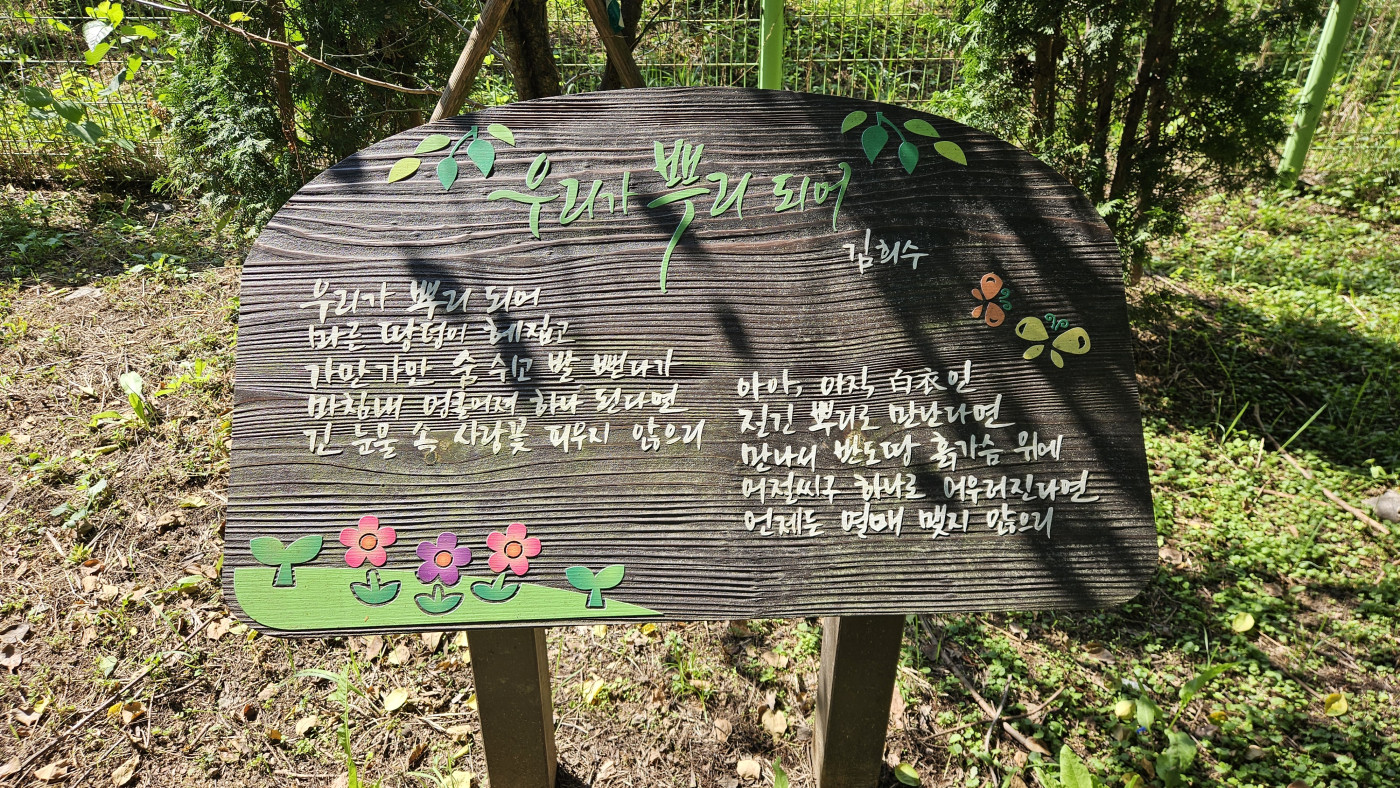 우리가 뿌리 되어
김희수
우리가 뿌리 되어
마른 땅덩이 헤집고
가만가만 숨 쉬고 발 뻗다가
마침내 엉클어져 하나 된다면
긴 눈물 속 사랑꽃 피우지 않으리
아아, 아직 白衣인
질긴 뿌리로 만난다면
만나서 반도땅 흙가슴 위에
어절씨구 하나로 어우러진다면
언제는 열매 맺지 않으리